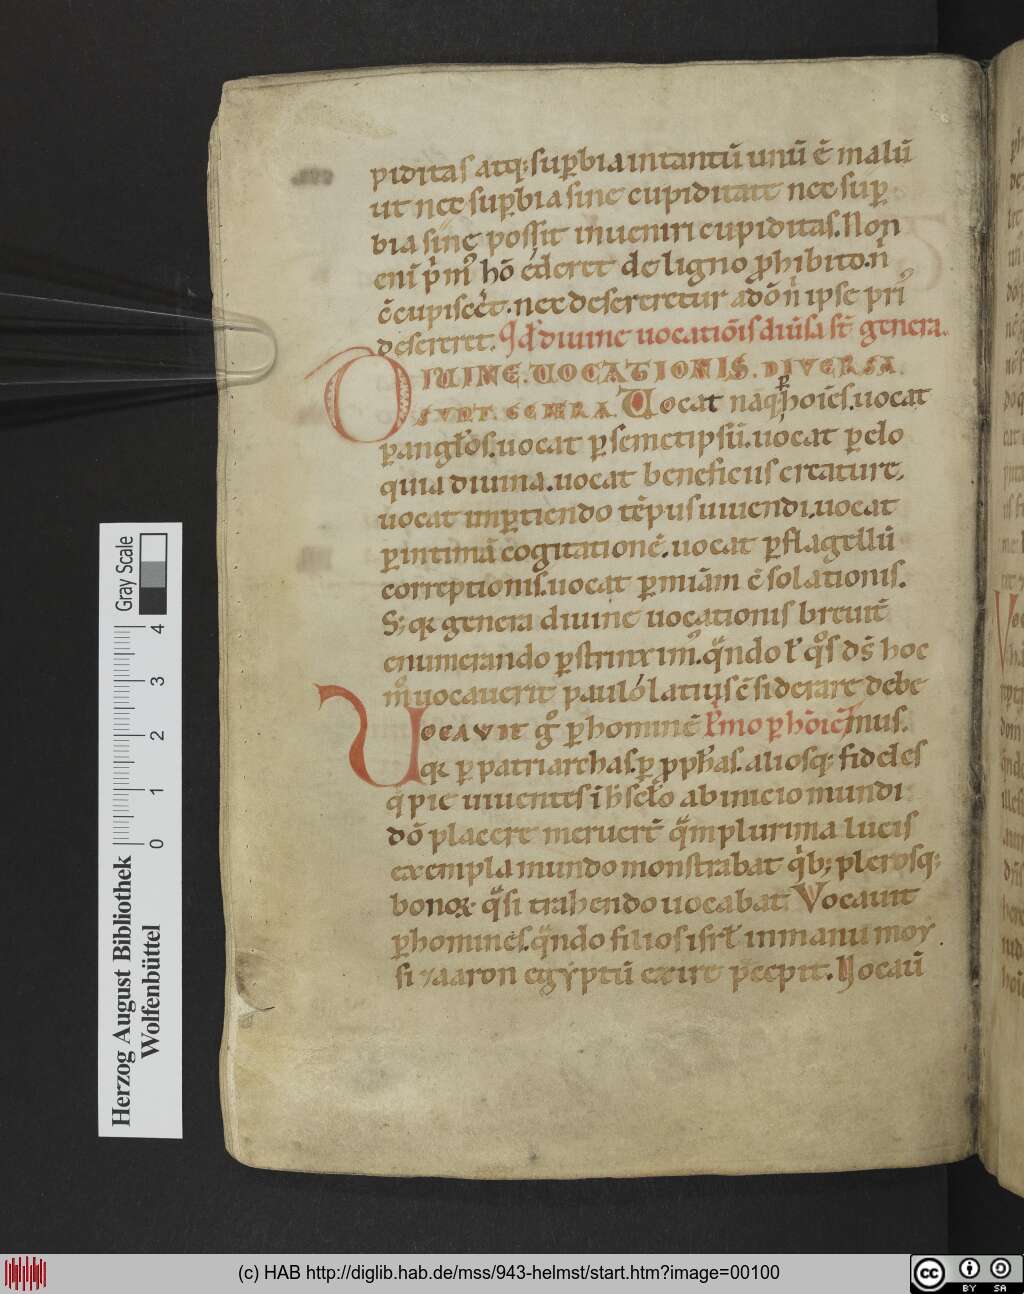 piditas atq; suꝑbia intantū unū ē malū
ut nec suꝑbia sine cupiditate nec suꝑ
bia sine possit inueniri cupiditas. Non
eni p̄m hō ederet de ligno ꝓhibito. n̄
ccupiscēt. nec desereretur adō n̄ ipse pri
desereret. Qd̄ diuine uocatiōis diūsa st̄ genera.
DIUINE. UOCATIONIS. DIVERSA
SVNT. GENERA. Uocat naq; ꝑ hoīes. uocat
ꝑ anglos. uocat ꝑ semetipsū. uocat ꝑ elo
quia diuina. uocat beneficiis creature.
uocat impertiendo tēpus uiuendi. uocat
ꝑ intimā cogitationē. uocat ꝑ flagellū
correptionis. uocat ꝑ miām cͣsolationis.
S; qꝛ genera diuine uocationis breuit̄
enumerando ꝑstrinxim᾽. qͣndo ł qͦs dꝰ hoc
mͦ uocauerit paulo latius cͣsiderare debe
Uocauit gͦ ꝑ hominē Pͥmo ꝑ hōiē mus.
qꝛ ꝑ patriarchas. ꝑ ꝓphas. aliosq; fideles
q pie uiuentes ī h scło ab inicio mundi
dō placere meruert̄ qͣm plurima lucis
exempla mundo monstrabat qͥb; plerosq;
bonoꝝ qͣsi trahendo uocabat. Vocauit
ꝑ homines. qͣndo filios isrł in manu moy
si ⁊ aaron egyptū exire p̄cepit. Uocaū
Gray Scale
0 1 2 3 4
Herzog August Bibliothek
Wolfenbüttel
(c) HAB http://diglib.hab.de/mss/943-helmst/start.htm?image=00100
cc BY SA